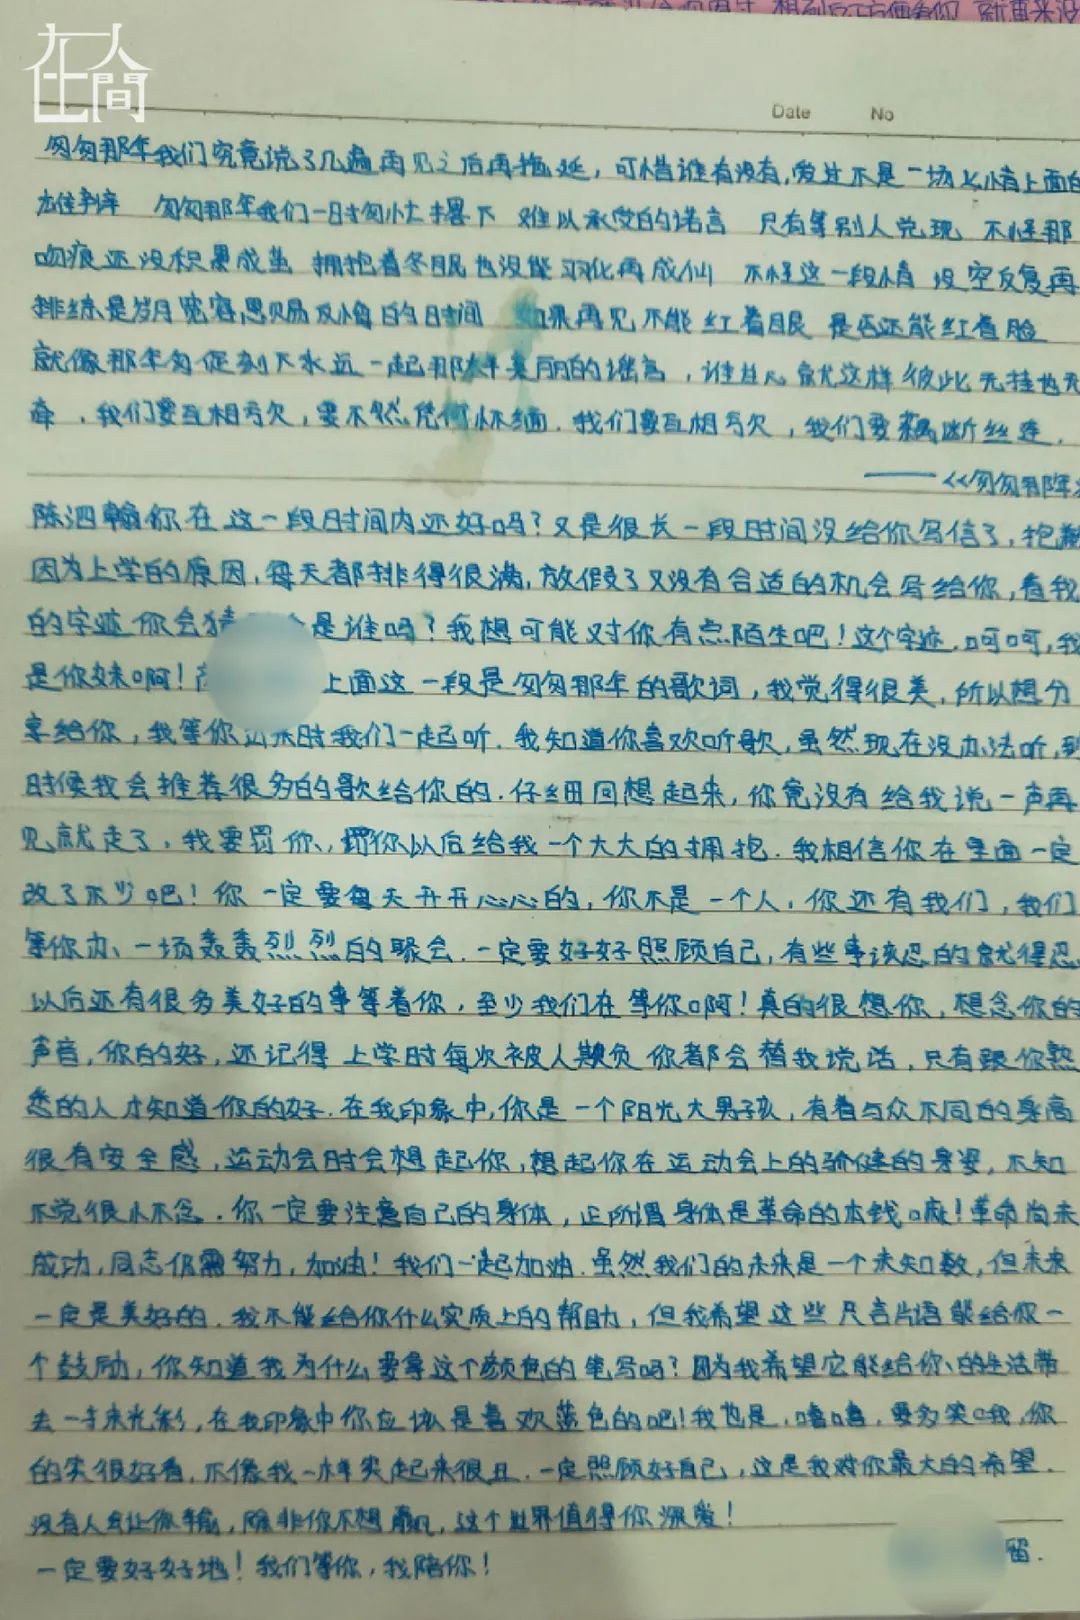 在人間
Date No
匆匆那年我们究竟说了几遍再见之后再拖延，可惜谁有没有，爱过不是一场七情上面的
雄辩 匆匆那年我们一时匆忙撂下 难以承受的诺言 只有等别人兑现 不怪那
吻痕还没积累成茧 拥抱着冬眠也没能羽化再成仙 不怪这一段情 没空反复再
排练是岁月宽容恩赐反悔的时间 如果再见不能红着眼 是否还能红着脸
就像那年匆促刻下永远一起那样美丽的谣言，谁甘心就这样彼此无挂也无
牵，我们要互相亏欠，要不然凭何怀缅。我们要互相亏欠，我们要藕断丝连。
——《匆匆那年
陈泗翰你在这一段时间内还好吗？又是很长一段时间没给你写信了，抱歉
因为上学的原因，每天都排得很满，放假了又没有合适的机会写给你，看我
的字迹你会猜 是谁吗？我想可能对你有点陌生吧！这个字迹，呵呵，我
是你妹啊！ 上面这一段是匆匆那年的歌词，我觉得很美，所以想分
享给你，我等你出来时我们一起听。我知道你喜欢听歌，虽然现在没办法听，到
时候我会推荐很多的歌给你的。仔细回想起来，你竟没有给我说一声再
见就走了，我要罚你，罚你以后给我一个大大的拥抱。我相信你在里面一定
改了不少吧！你一定要每天开开心心的，你不是一个人，你还有我们，我们
等你办一场轰轰烈烈的聚会。一定要好好照顾自己，有些事该忍的就得忍，
以后还有很多美好的事等着你，至少我们在等你啊！真的很想你，想念你的
声音，你的好，还记得上学时每次被人欺负你都会替我说话，只有跟你熟
悉的人才知道你的好。在我印象中，你是一个阳光大男孩，有着与众不同的身高
很有安全感，运动会时会想起你，想起你在运动会上的矫健的身姿，不知
不觉很小不念。你一定要注意自己的身体，正所谓身体是革命的本钱嘛！革命尚未
成功，同志仍需努力，加油！我们一起加油。虽然我们的未来是一个未知数，但未来
一定是美好的。我不能给你什么实质上的帮助，但我希望这些只言片语能给你一
个鼓励，你知道我为什么要拿这个颜色的笔写吗？因为我希望它能给你的生活带
去一抹光彩，在我印象中你应该是喜欢蓝色的吧！我也是，嘻嘻，要多笑哦，你
的笑很好看，不像我一样笑起来很丑。一定照顾好自己，这是我对你最大的希望。
没有人会让你输，除非你不想赢，这个世界值得你深爱！
一定要好好地！我们等你，我陪你！
留。